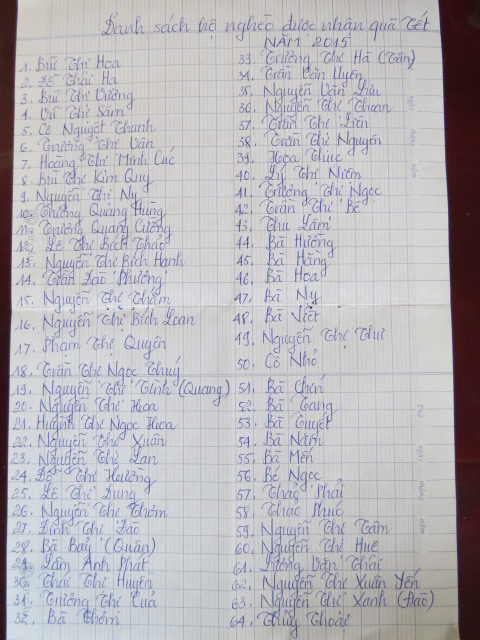 Danh sách hộ nghèo được nhận quà Tết
NĂM 2015
1. Bùi Thị Hoa
2. Lê Thái Hà
3. Bùi Thị Vương
4. Vũ Thị Sâm
5. Cô Nguyệt Thanh
6. Trương Thị Vân
7. Hoàng Thị Minh Cúc
8. Bùi Thị Kim Quy
9. Nguyễn Thị Ny
10. Trương Quang Hùng
11. Trương Quang Cường
12. Lê Thị Bích Thảo
13. Nguyễn Thị Bích Hạnh
14. Trần Đào Phương
15. Nguyễn Thị Thắm
16. Nguyễn Thị Bích Loan
17. Phạm Thị Quyên
18. Trần Thị Ngọc Thúy
19. Nguyễn Thị Tình (Quang)
20. Nguyễn Thị Hoa
21. Huỳnh Thị Ngọc Hoa
22. Nguyễn Thị Xuân
23. Nguyễn Thị Lan
24. Đỗ Thị Hương
25. Lê Thị Dung
26. Nguyễn Thị Thơm
27. Đinh Thị Đào
28. Bà Bảy (Quân)
29. Lâm Anh Phát
30. Thái Thị Huyền
31. Trương Thị Của
32. Bà Thơm
33. Trương Thị Hà (Tân)
34. Trần Văn Uyên
35. Nguyễn Văn Lưu
36. Nguyễn Thị Thoan
37. Trần Thị Liên
38. Trần Thị Nguyên
39. Hoa Thúc
40. Lý Thị Niêm
41. Trương Thị Ngọc
42. Trần Thị Bê
43. Thu Lâm
44. Bà Hường
45. Bà Hằng
46. Bà Hoa
47. Bà Ny
48. Bà Việt
49. Nguyễn Thị Thu
50. Cô Nhỏ
51. Bà Chín
52. Bà Cang
53. Bà Tuyết
54. Bà Năm
55. Bà Mến
56. Bé Ngọc
57. Thảo Phải
58. Thảo Phúc
59. Nguyễn Thị Tâm
60. Nguyễn Thị Huệ
61. Lương Văn Thái
62. Nguyễn Thị Xuân Yến
63. Nguyễn Thị Xanh (Đào)
64. Thủy Thoại